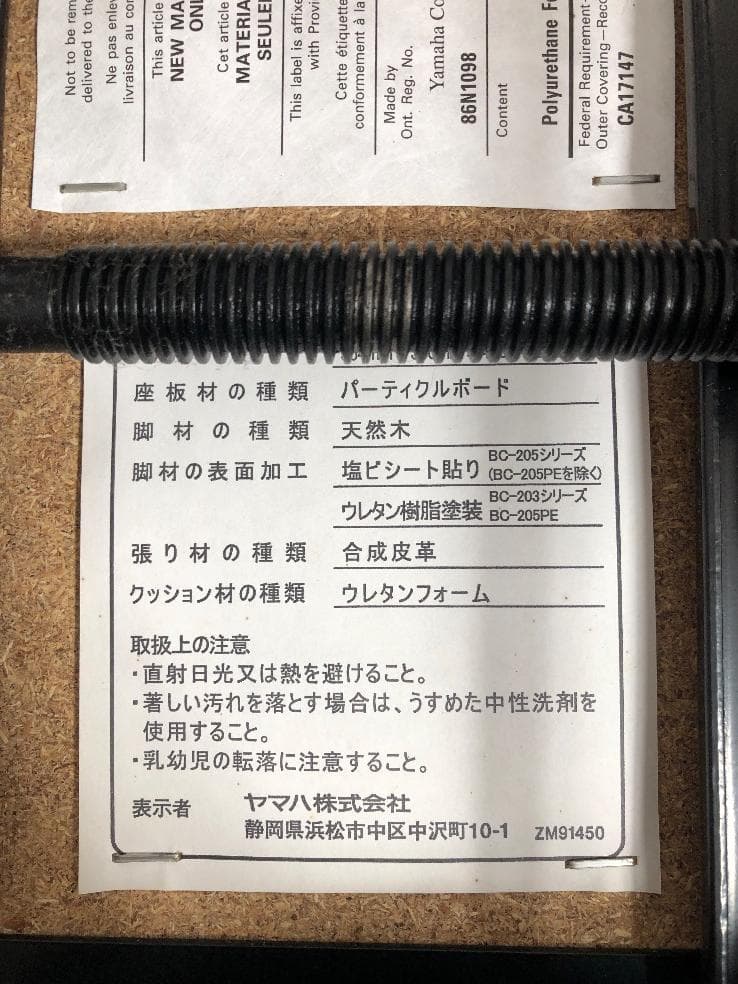 Not to be rem
delivered to the
Ne pas enlev
livraison au con
This article
NEW MA
ON
Cet article
MATERIA
SEULE
This label is affixe
with Provi
Cette étiquette
conformement à la
Made by
Ont. Reg. No.
Yamaha Co
86N1098
Content
Polyurethane Fo
Federal Requirement-
Outer Covering—Rec
CA17147
座板材の種類 パーティクルボード
脚材の種類 天然木
脚材の表面加工 塩ビシート貼り BC-205シリーズ
(BC-205PEを除く)
ウレタン樹脂塗装 BC-203シリーズ
BC-205PE
張り材の種類 合成皮革
クッション材の種類 ウレタンフォーム
取扱上の注意
・直射日光又は熱を避けること。
・著しい汚れを落とす場合は、うすめた中性洗剤を
使用すること。
・乳幼児の転落に注意すること。
表示者 ヤマハ株式会社
静岡県浜松市中区中沢町10-1 ZM91450